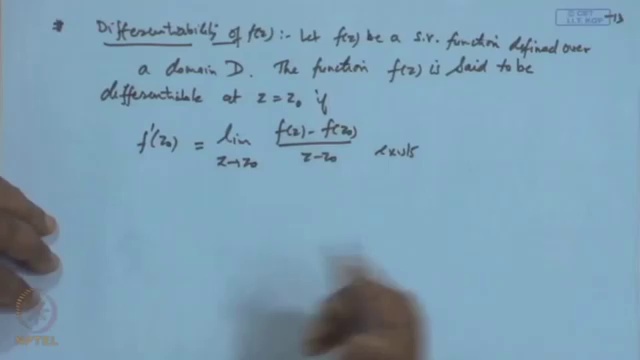 © CET
I.I.T. KGP
* Differentiability of f(z) :- Let f(z) be a s.v. function defined over
a domain D. The function f(z) is said to be
differentiable at z = z₀ if
f'(z₀) = lim z→z₀ (f(z) - f(z₀))/(z - z₀) exists
NPTEL